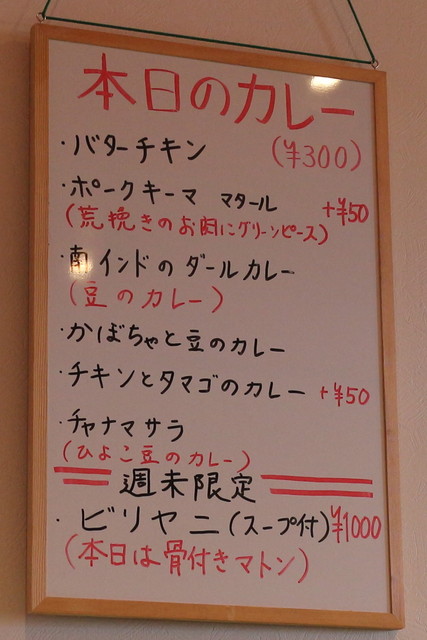 本日のカレー
・バターチキン (¥300)
・ポークキーマ マタール +¥50
(荒挽きのお肉にグリーンピース)
・南インドのダールカレー
(豆のカレー)
・かぼちゃと豆のカレー
・チキンとタマゴのカレー +¥50
・チャナマサラ
(ひよこ豆のカレー)
週末限定
・ビリヤニ(スープ付)¥1000
(本日は骨付きマトン)